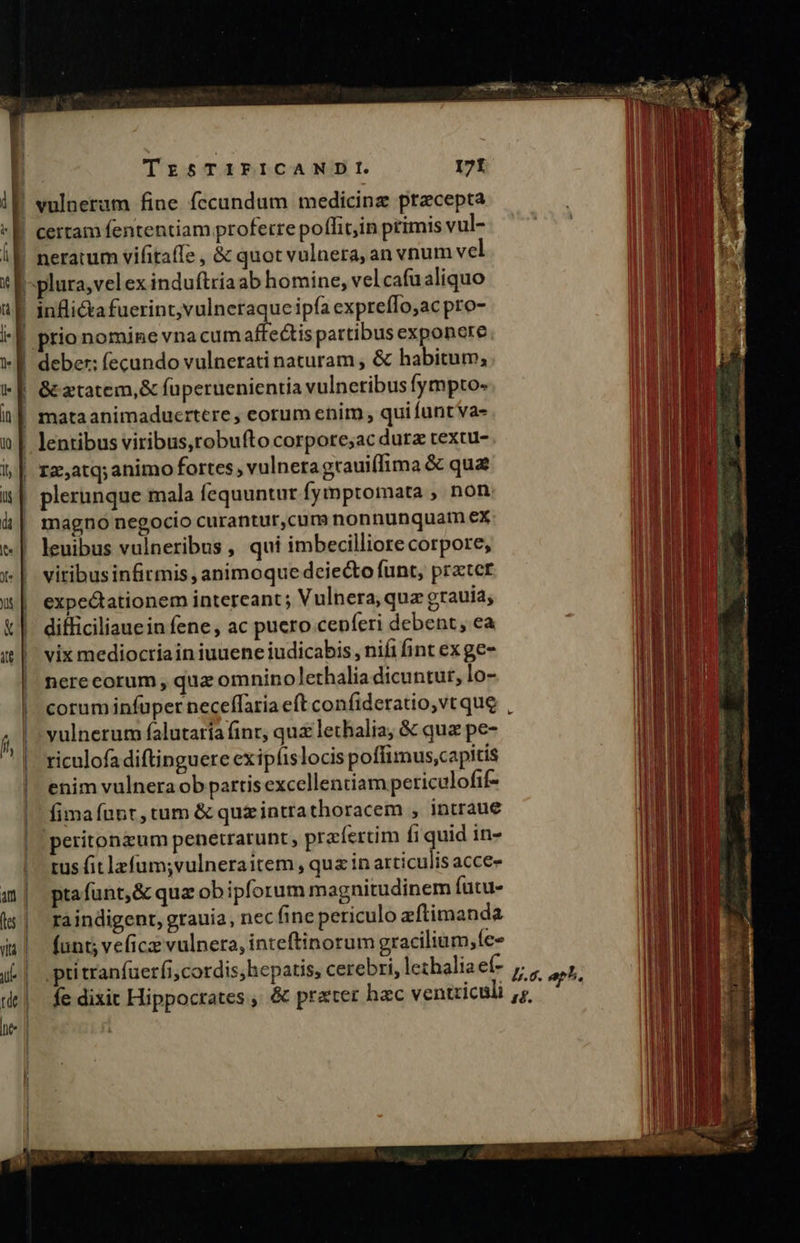 TESTIFICANDI. 171
vulnerum siue secundum medicinæ præcepta
certam sententiam proferre possit, in primis vul-
neratum visitasse, & quot vulnera, an vnum vel
plura, vel ex industria ab homine, vel casu aliquo
inflicta fuerint, vulneraque ipsa expresso, ac pro-
prio nomine vna cum affectis partibus exponere
debet: secundo vulnerati naturam, & habitum,
& ætatem, & superuenientia vulneribus sympto-
mata animaduertere, eorum enim, qui sunt va-
lentibus viribus, robusto corpore, ac duræ textu-
ræ, atq; animo fortes, vulnera grauissima & quæ
plerunque mala sequuntur symptomata, non
magno negocio curantur, cum nonnunquam ex
leuibus vulneribus, qui imbecilliore corpore,
viribus infirmis, animoque deiecto sunt, præter
expectationem intereant; Vulnera, quæ grauia,
difficiliaue in sene, ac puero censeri debent, ea
vix mediocria in iuuene iudicabis, nisi sint ex ge-
nere eorum, quæ omnino lethalia dicuntur, lo-
corum insuper necessaria est consideratio, vt quę
vulnerum salutaria sint, quæ lethalia, & quæ pe-
riculosa distinguere ex ipsis locis possimus, capitis
enim vulnera ob partis excellentiam periculosis-
sima sunt, tum & quæ intra thoracem, intraue
peritonæum penetrarunt, præsertim si quid in-
tus sit læsum; vulnera item, quæ in articulis acce-
pta sunt, & quæ ob ipsorum magnitudinem sutu-
ra indigent, grauia, nec sine periculo æstimanda
sunt; vesicæ vulnera, intestinorum gracilium, se-
pti transuersi, cordis, hepatis, cerebri, lethalia es-
se dixit Hippocrates, & præter hæc ventriculi